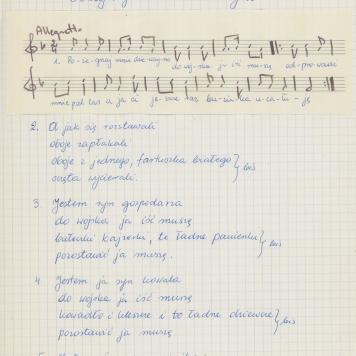 Allegretto
1. Po-że-gnaj mnie dziewczyno do woj-ska ja iść mu-szę od-prowadź
mnie pod las a ja ci jesz-cze raz bu-ziu-nia u-ca-łu-ję
2. A jak się rozstawali
oboje zapłakali
oboje z jednego, fartuszka białego } bis
oczęta wycierali.
3. Jestem syn gospodarza
do wojska ja iść muszę
ja te ładne panienki } bis
pozostawić ja muszę.
4. Jestem ja syn kowala
do wojska ja iść muszę
kowadło i kleszcze i te ładne dziewczę } bis
pozostawić ja muszę.